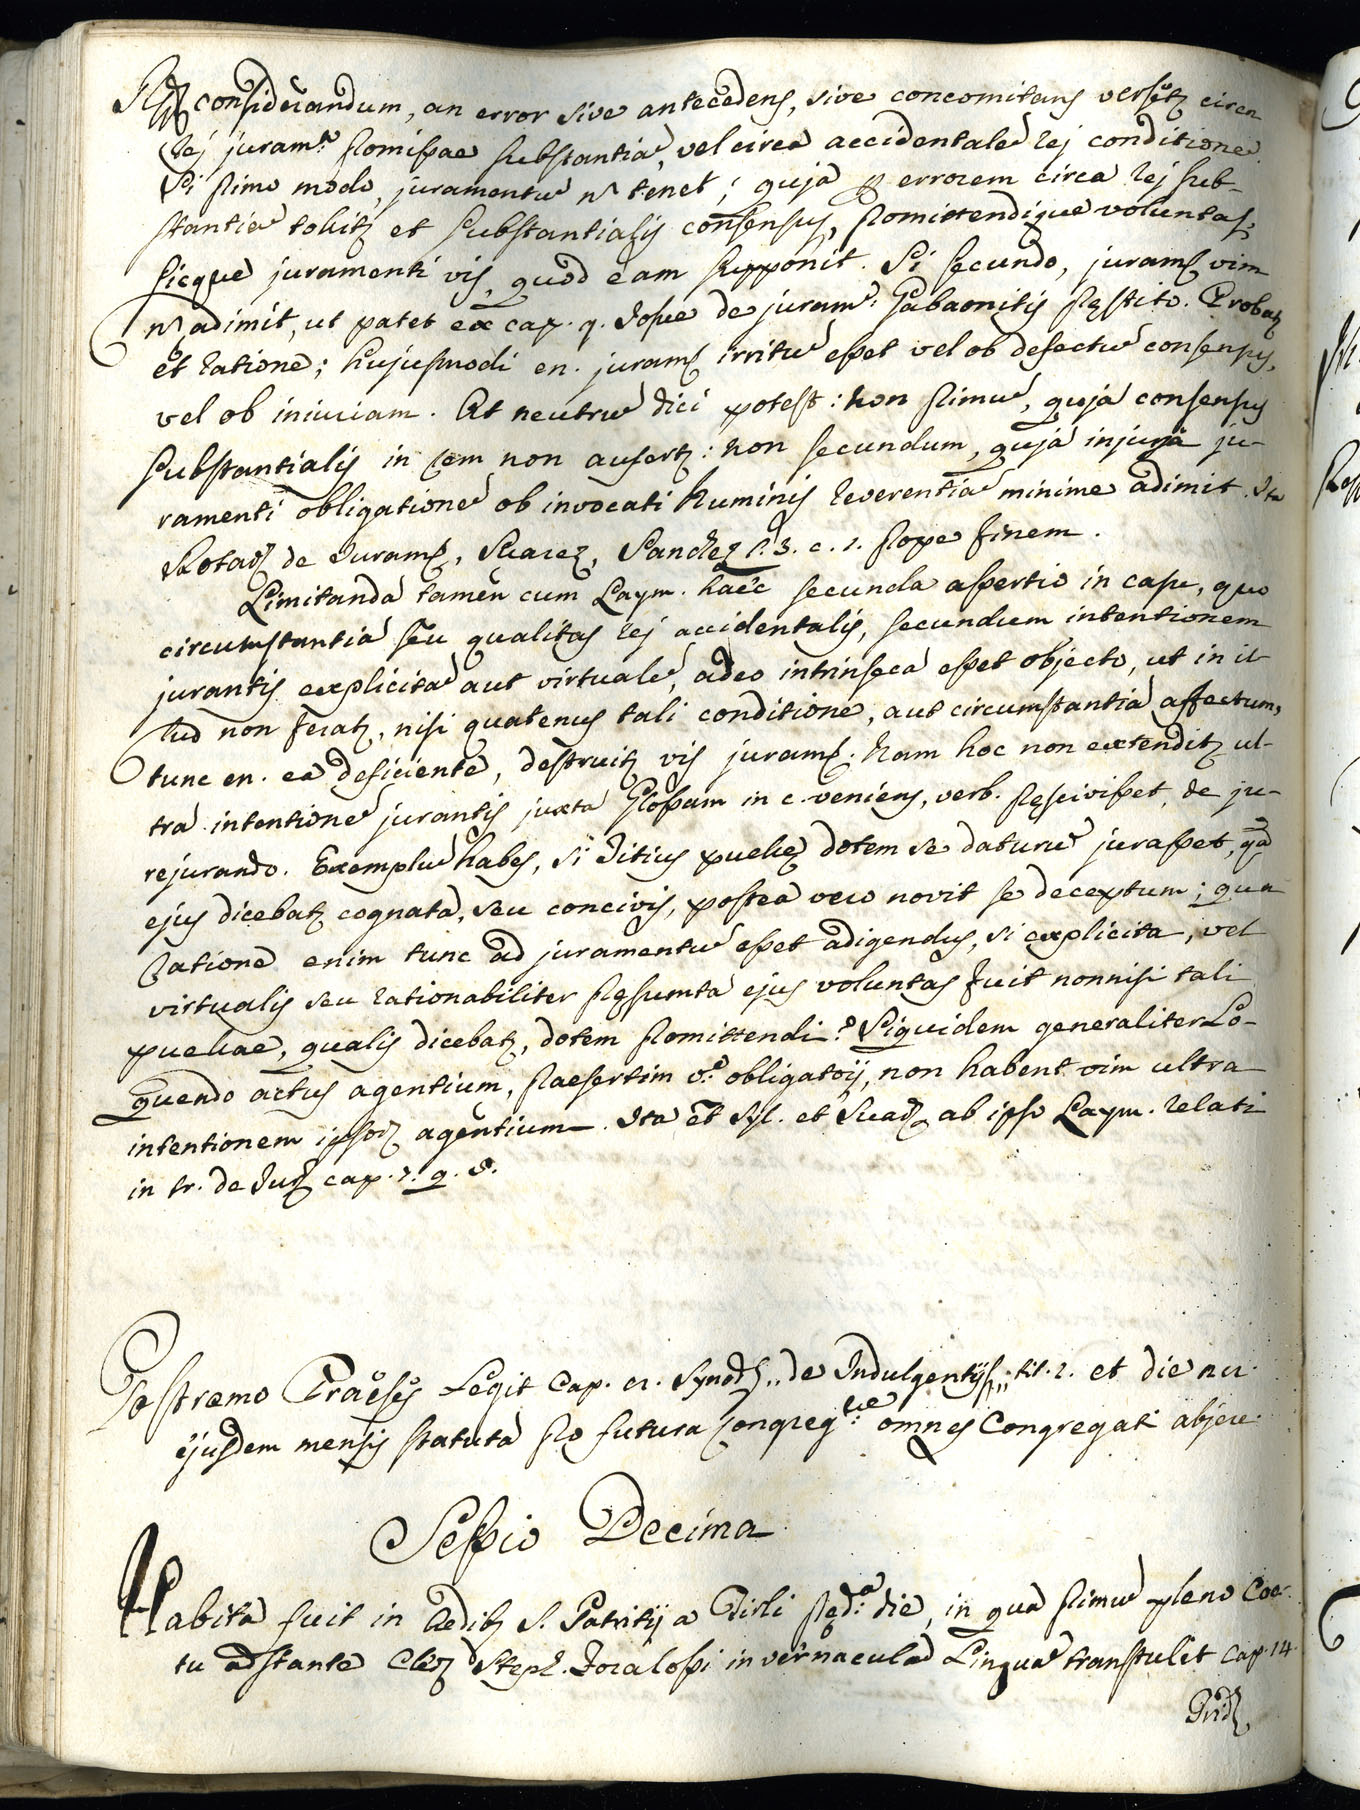 considerandum, an error sive antecedens, sive concomitans versetr circa
rej juramto promissae substantia, vel circa accidentale rej conditione.
Si primo modo, juramentu n tenet; quja p errorem circa rej sub-
stantia tollitr et substantialis consensus, promittendique voluntas,
sicque juramenti vis, quod eam supponit. Si secundo, juram vim
n adimit, ut patet ex cap. 9. Josue de juramo Gabaonitis prestito. Probatr
et ratione; hujusmodi en. juram irritu esset vel ob defectu consensus,
vel ob iniuriam. At neutru dici potest: non primu, quja consensus
substantialis in rem non aufertr: non secundum, quja injuria ju-
ramenti obligatione ob invocati Numinis reverentia minime adimit. Ita
de Juram, Suarez, Sanchez l. 3. c. 1. prope finem.
Limitanda tamen cum Laym. haec secunda assertio in casu, quo
circumstantia seu qualitas rej accidentalis, secundum intentionem
jurantis explicita aut virtuale, adeo intrinseca esset objecto, ut in il-
lud non feratr, nisi quatenus tali conditione, aut circumstantia affectum,
tunc en. ea deficiente, destruitr vis juram. Nam hoc non extenditr ul-
tra intentione jurantis juxta Glossam in c. veniens, verb. prescivisset, de ju-
rejurando. Exemplu habes, si Titius puellae dotem se daturu jurasset, qa
ejus dicebatr cognata, seu concivis, postea vero novit se deceptum; qua
ratione enim tunc ad juramentu esset adigendus, si explicita, vel
virtualis seu rationabiliter presumta ejus voluntas fuit nonnisi tali
puellae, qualis dicebatr, dotem promittendi? Siquidem generaliter lo-
quendo actus agentium, praesertim vo obligatorij, non habent vim ultra
intentionem ipsor agentium. Ita et Syl. et Suar ab ipso Laym. relati
in tr. de Jur cap. 7. q. 8.
Postremo Praeses Legit Cap. Synod,, de Indulgentijs,, tit. 2. et die
ejusdem mensis statuta pro futura Congregne omnes Congregati abjere
Sessio Decima
Habita fuit in Aedib S. Patritij a Girli preda die, in qua primu pleno Coe-
tu adstante Cler Steph. in vernacula Lingua transtulit Cap. 14.